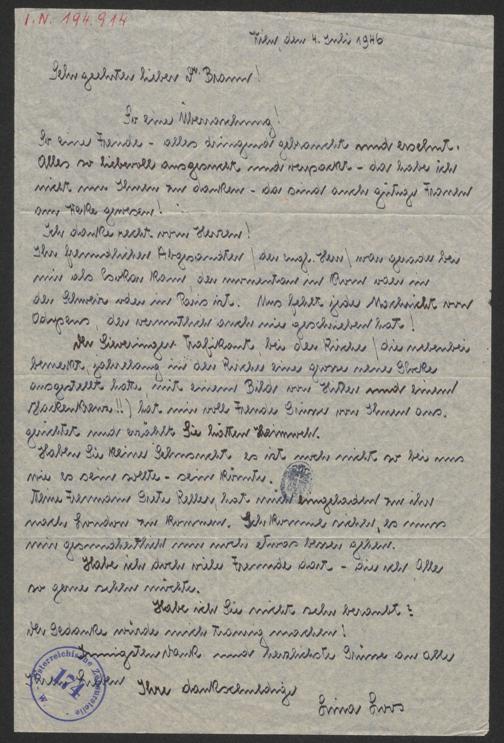 I.N. 194.914
Wien, den 4. Juli 1946
Sehr geehrter lieber Dr. Braun!
So eine Überraschung!
So eine Freude - alles dringend gebraucht und ersehnt.
Alles so liebevoll ausgesucht und verpackt - da habe ich
nicht nur Ihnen zu danken - da sind auch gütige Frauen
am Werke gewesen!
Ich danke recht vom Herzen!
Ihr freundlicher Abgesandter / der engl. Herr / war gerade bei
mir als Esokor kam, der momentan in Rom oder in
der Schweiz oder in Paris ist. Uns fehlt jede Nachricht von
der vermutlich auch nie geschrieben hat!
Der Sieveringer Trafikant, bei der Kirche / die nebenbei
bemerkt, jahrelang in der Kirche eine grosse neue Glocke
ausgestellt hatte mit einem Bild von Hitler und einem
Hackenkreuz!!) hat mir voll Freude Grüsse von Ihnen aus-
gerichtet und erzählt Sie hätten Heimweh.
Haben Sie keine Sehnsucht es ist noch nicht so bei uns
wie es sein sollte - sein könnte.
Meine Freundin Grete hat mich eingeladen zu ihr
nach London zu kommen. Ich komme sicher, es muss
mir gesundheitlich nur noch etwas besser gehen.
Habe ich doch viele Freunde dort - die ich Alle
so gerne sehen möchte.
Habe ich Sie nicht sehr beraubt?
Der Gedanke würde mich traurig machen!
Innigsten Dank und herzlichste Grüsse an alle
Ihre Lieben
Ihre dankschuldige
Lina Loos
W. Österreichische Zensurstelle
174